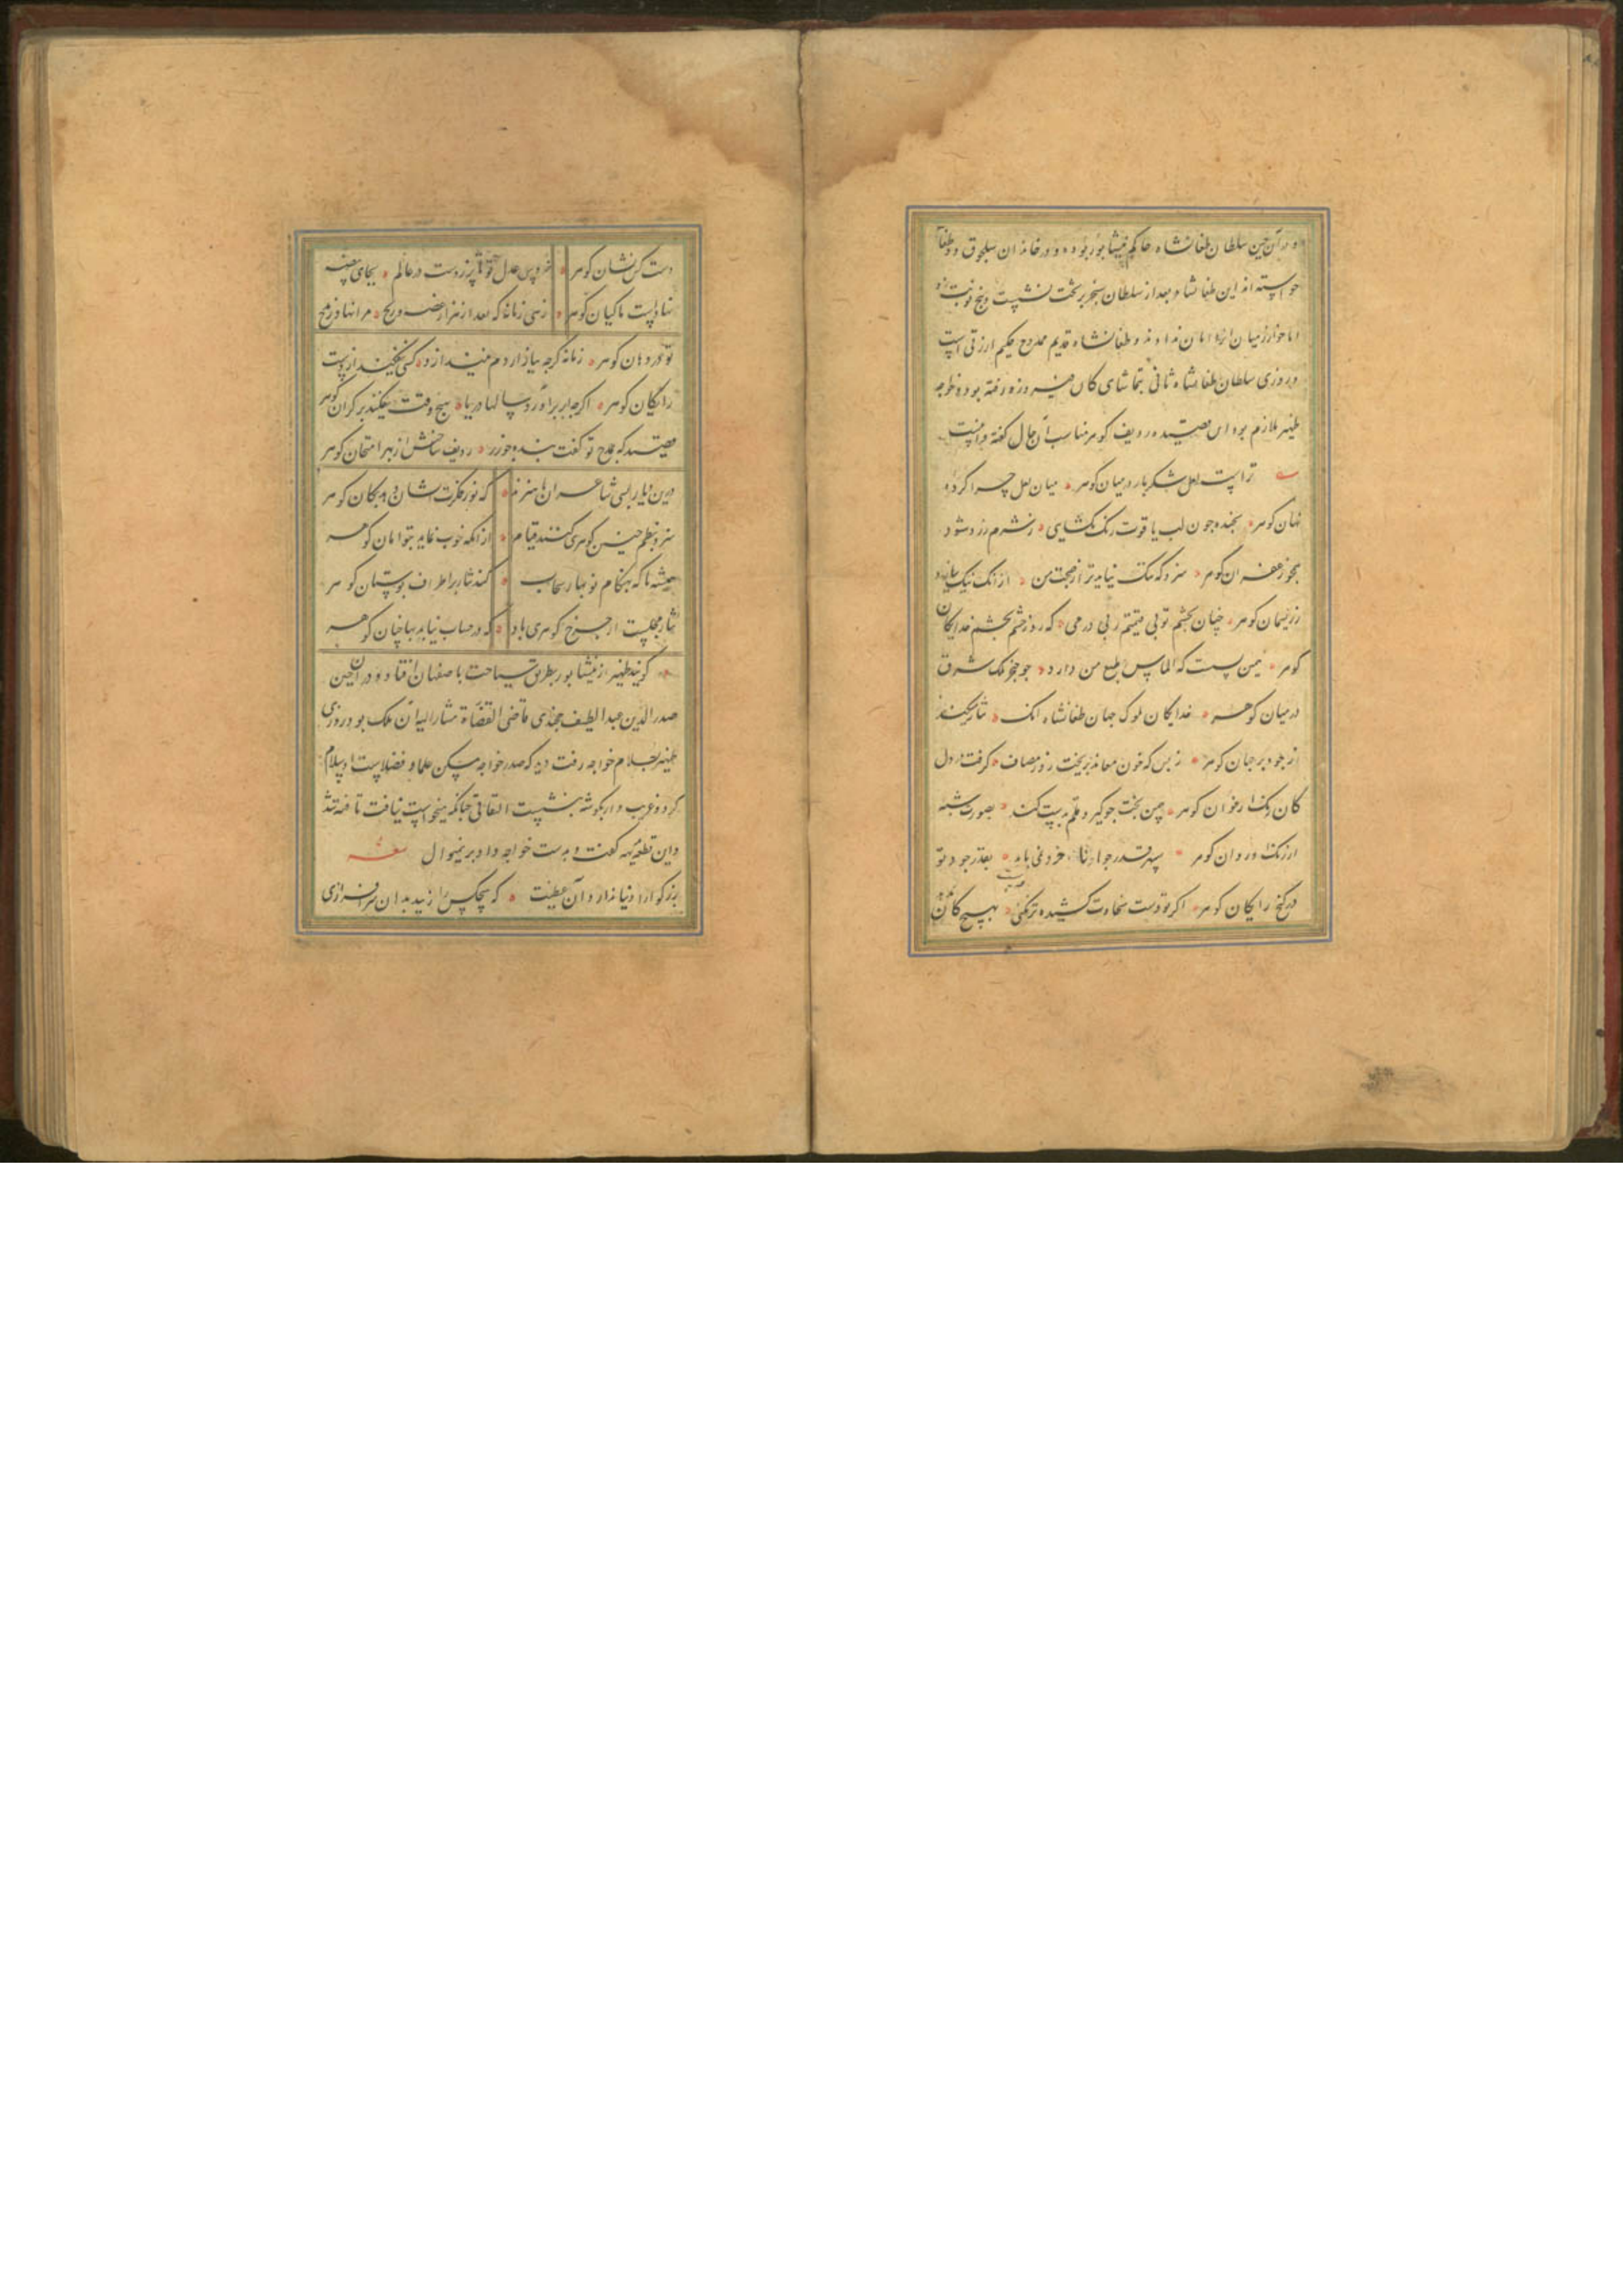 و در آن حین سلطان طغانشاه حاکم نیشابور بوده و در خاندان سلجوق دو طغا
خواسته اند این طغانشاه بعد از سلطان سنجر بر تخت نشست و پنج نوبت زد
اما خوارزمیان او را امان ندادند و طغانشاه قدیم ممدوح حکیم ارزقی است
و روزی سلطان طغانشاه ثانی بتماشای کان فیروزه رفته بوده و خواجه
ظهیر ملازم بود این قصیده ردیف گوهر مناسب آن حال گفته و اینست
تراست لعل شکربار در میان گوهر میان لعل چرا کرده
نهان گوهر بخنده چون لب یاقوت رنگ بگشایی ز شرم زرد شود
همچو زعفران گوهر سزد که ننگ نیاید ترا ز صحبت من از آنک نیک نماید
ز ریسمان گوهر چنان بچشم تو بی قیمتم ز بی درمی که روز بخشم بچشم خدایگان
گوهر همین بست که الماس طبع من دارد چو خنجر ملک شرق
در میان گوهر خدایگان ملوک جهان طغانشاه آنک نثار میکند
از جود بر جهان گوهر ز بس که خون معاند بریخت روز مصاف گرفت در دل
کان رنگ ارغوان گوهر چو گیرد قلم بدست کند بصورت شبه
از رنگ در روان گوهر سپهر قدرجواد فزونی باید بقدر جود تو
در گنج رایگان گوهر اگر تو دست سخاوت کشیده تر نکنی بهیچ کان
دست کس نشان گوهر خروس عدل تو تا پر زدست در عالم بجای بیضه
نهادست ماکیان گوهر زهی زمانه که بعد از هزار غصه و رنج مرا نهاد ز مدح
تو در دهان گوهر زمانه گرچه بیازاردم نیندازد کسی نیفکند از دست
رایگان گوهر اگرچه ابر برآورد سالها دریا هیچ وقت نیفکند بر کران گوهر
قصیده که بمدح تو گفت بنده چو زر ردیف ساختش از بهر امتحان گوهر
درین دیار بسی شاعران با هنرند که نور فکرتشان دهد بکان گوهر
سزد بنظم چنین گوهری کنند قیام از آنکه خوب نماید بتوامان گوهر
همیشه تا که بهنگام نوبهار سحاب کند نثار بر اطراف بوستان گوهر
نثار مجلست از چرخ گوهری باد که در حساب نیاید بهاجان گوهر
گویند ظهیر از نیشابور بطریق سیاحت باصفهان افتاد و در آن حین
صدرالدین عبداللطیف خجندی قاضی القضاة مشارالیه آن ملک بود روزی
ظهیر بسلام خواجه رفت دید که صدر خواجه مسکن علما و فضلاست او سلام
کرد و غریب وار بگوشه بنشست التفاتی چنانکه میخواست نیافت تافته شد
و این قطعه بدیهه گفت و بدست خواجه داد برینموال شعر
بزرگوارا دنیا ندارد آن عظمت که هیچکس را زیبد بدان سرافرازی